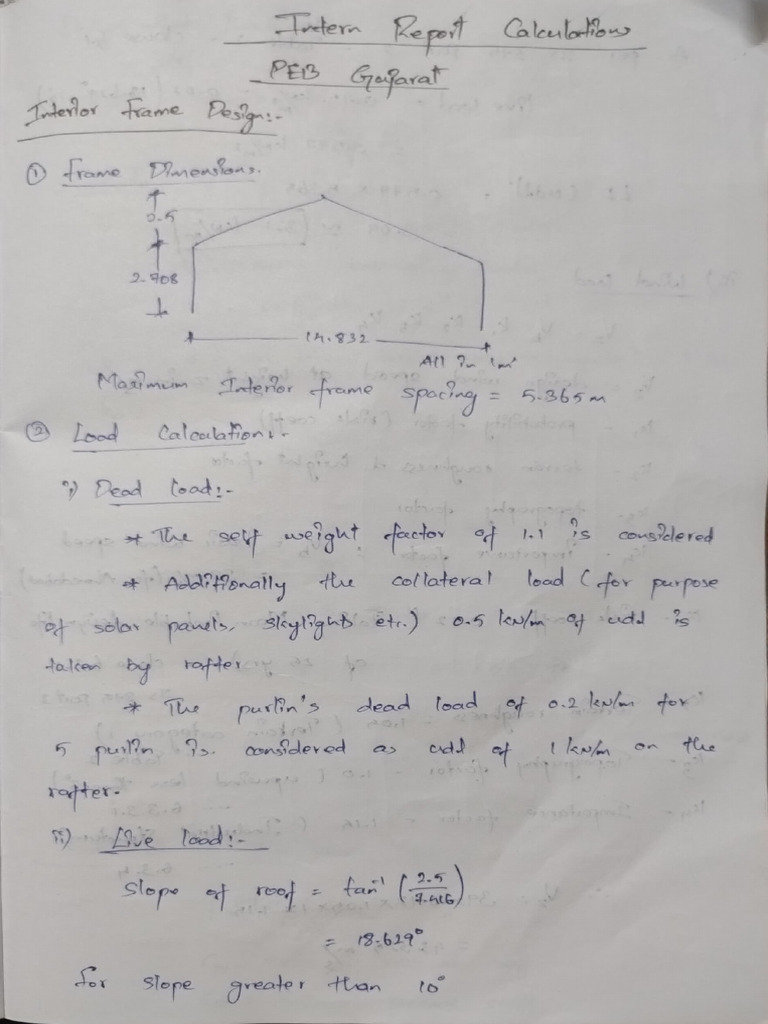 Intern Report Calculations
PEB Gujarat
Interior Frame Design:-
① Frame Dimensions.
2.5
2.708
14.832
All in 'm'
Maximum Interior frame spacing = 5.365m
② Load Calculation:-
i) Dead Load:-
* The self weight factor of 1.1 is considered
* Additionally the collateral load (for purpose
of solar panels, skylights etc.) 0.5 kN/m of udl is
taken by rafter
* The purlin's dead load of 0.2 kN/m for
5 purlin is considered as udl of 1 kN/m on the
rafter.
ii) Live load:-
Slope of roof = tan⁻¹ (2.5/7.416)
= 18.629°
for slope greater than 10°